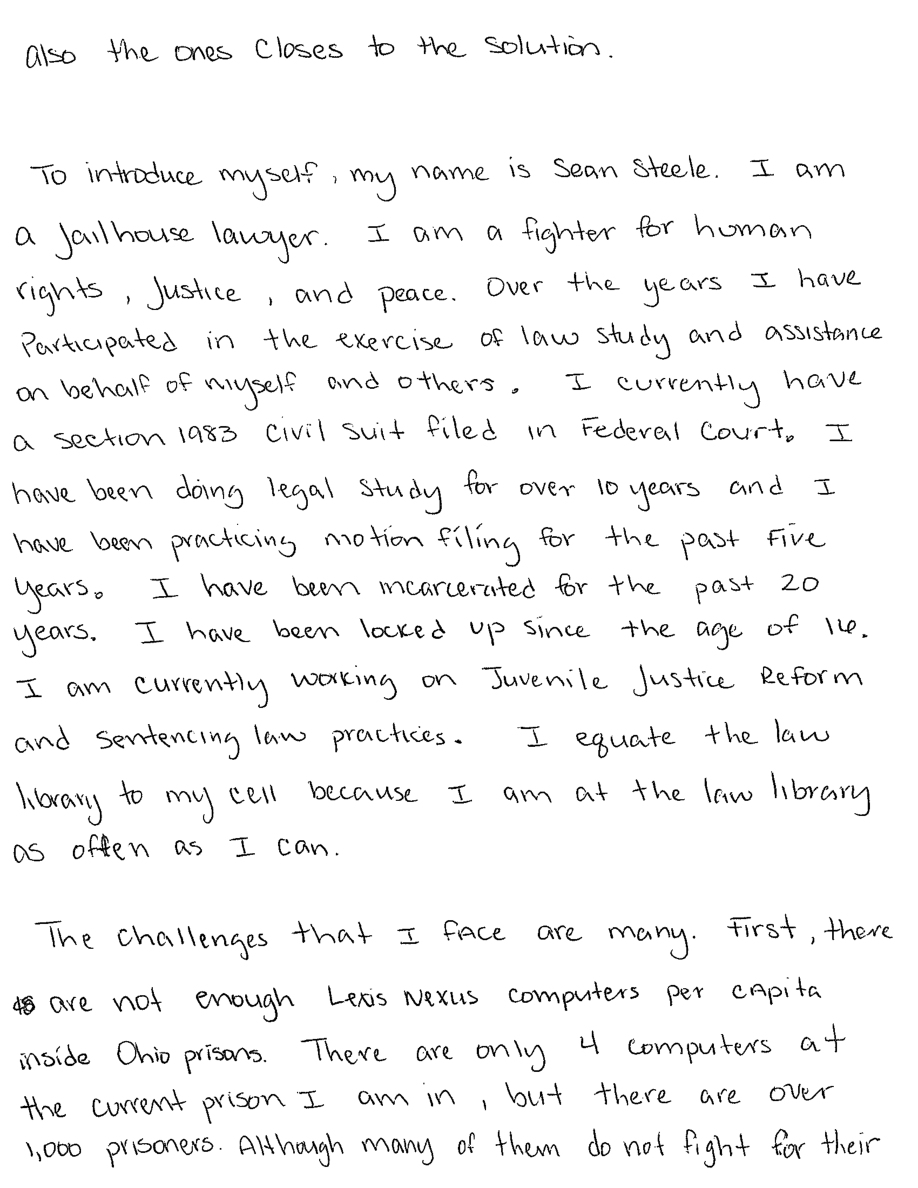 also the ones closes to the solution.
To introduce myself, my name is Sean Steele. I am
a jailhouse lawyer. I am a fighter for human
rights, justice, and peace. Over the years I have
Participated in the exercise of law study and assistance
on behalf of myself and others. I currently have
a section 1983 civil suit filed in Federal Court. I
have been doing legal study for over 10 years and I
have been practicing motion filing for the past five
years. I have been incarcerated for the past 20
years. I have been locked up since the age of 16.
I am currently working on Juvenile Justice Reform
and sentencing law practices. I equate the law
library to my cell because I am at the law library
as often as I can.
The challenges that I face are many. First, there
are not enough Lexis Nexus computers per capita
inside Ohio prisons. There are only 4 computers at
the current prison I am in, but there are over
1,000 prisoners. Although many of them do not fight for their